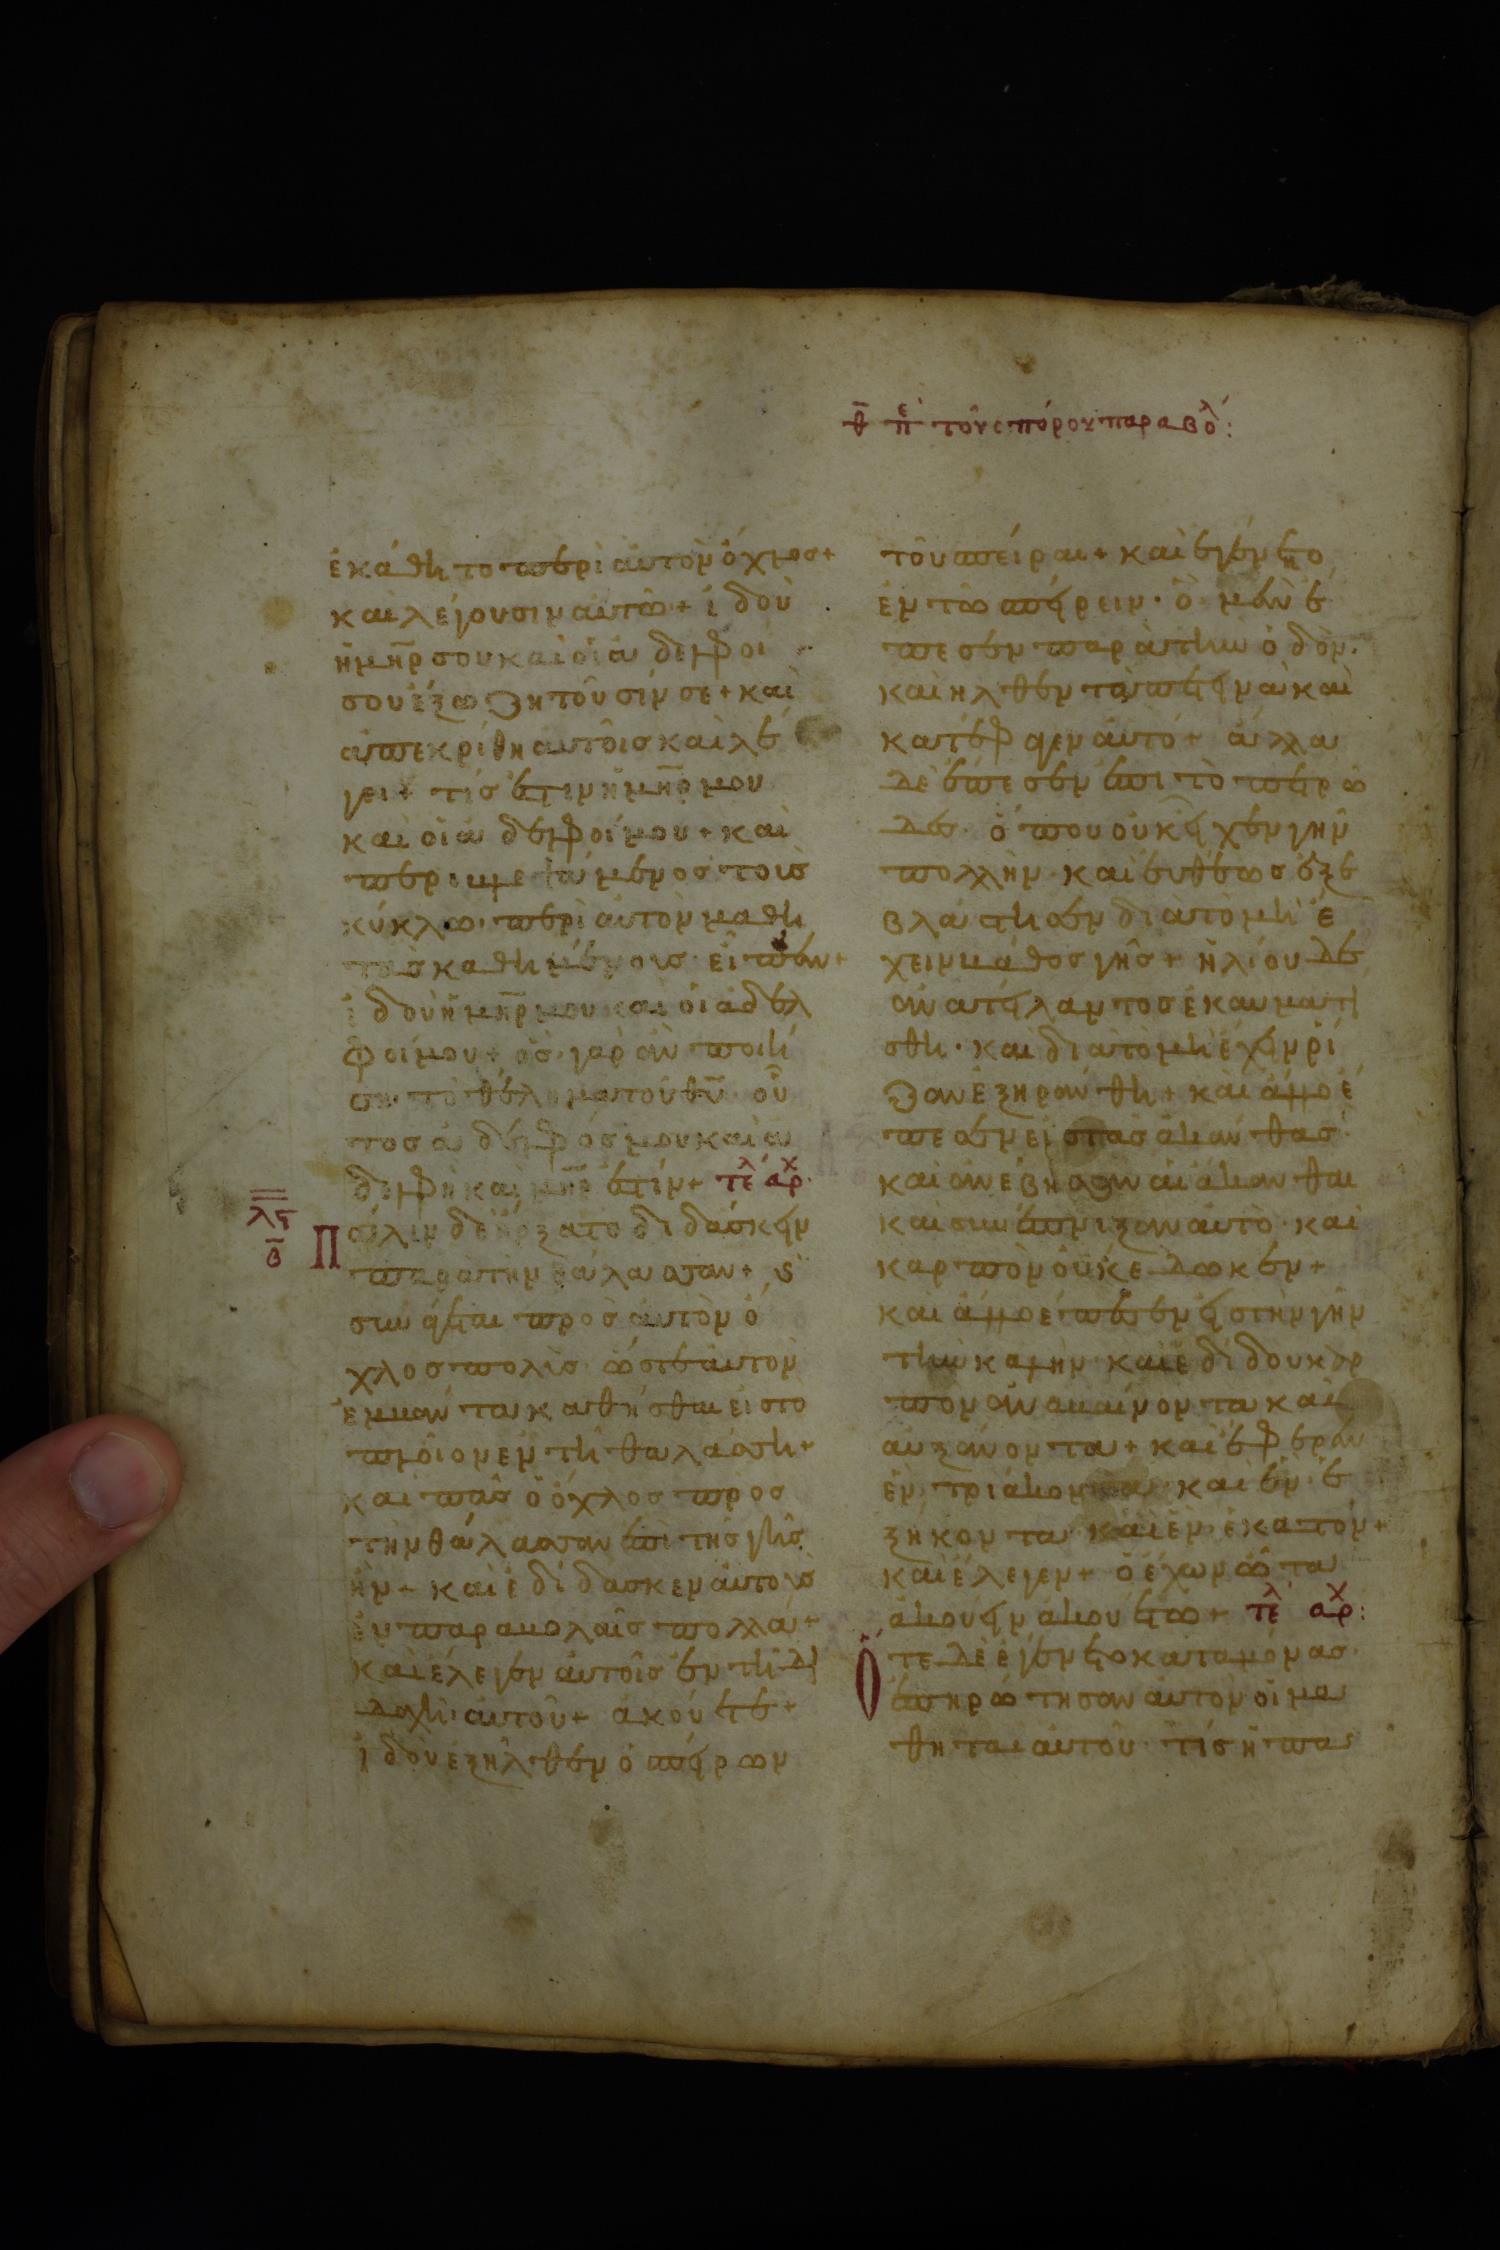 θ̄ πε τοῦ σπόρου παραβολ:
ἐκάθητο περὶ αὐτὸν ὄχλος+
καὶ λέγουσιν αὐτῶ+ ἰδοὺ
ἡ μη̅ρ σου καὶ οἱ ἀδελφοί
σου ἔξω ζητοῦσίν σε+ καὶ
ἀπεκρίθη αὐτοῖς καὶ λέ
γει+ τίς ἐστιν ἡ μη̅ρ μου
καὶ οἱ ἀδελφοί μου+ καὶ
περιβλεψάμενος τοὺς
κύκλω περὶ αὐτὸν μαθη
τὰς καθημένους εἶπεν+
ἰδοὺ ἡ μη̅ρ μου καὶ οἱ ἀδελ
φοί μου+ ὃς γὰρ ἂν ποιή
ση τὸ θέλημα τοῦ θυ̅ οὗ
τος ἀδελφός μου καὶ ἀ
δελφὴ καὶ μη̅ρ ἐστίν+ τελ αρχ
λϛ
β
Πάλιν δὲ ἤρξατο διδάσκειν
παρὰ τὴν θάλασσαν+ ϗ
συνάγεται πρὸς αὐτὸν ὄ
χλος πολὺς ὥστε αὐτὸν
ἐμβάντα καθῆσθαι εἰς τὸ
πλοῖον ἐν τῆ θαλάσση+
καὶ πᾶς ὁ ὄχλος πρὸς
τὴν θάλασσαν ἐπὶ τῆς γῆς
ἦν+ καὶ ἐδίδασκεν αὐτοὺς
ἐν παραβολαῖς πολλά+
καὶ ἔλεγεν αὐτοῖς ἐν τῆ δι
δαχῆ αὐτοῦ+ ἀκούετε+
ἰδοὺ ἐξῆλθεν ὁ σπείρων
τοῦ σπεῖραι+ καὶ ἐγένετο
ἐν τῶ σπείρειν· ὃ μὲν ἔ
πεσεν παρὰ τὴν ὁδὸν·
καὶ ἦλθεν τὰ πετεινὰ καὶ
κατέφαγεν αὐτό+ ἄλλο
δὲ ἔπεσεν ἐπὶ τὸ πετρῶ
δες· ὅπου οὐκ εἶχεν γῆν
πολλὴν· καὶ εὐθέως ἐξε
βλάστησεν διὰ τὸ μὴ ἔ
χειν βάθος γῆς+ ἡλίου δὲ
ἀνατείλαντος ἐκαυματί
σθη· καὶ διὰ τὸ μὴ ἔχειν ῥί
ζαν ἐξηράνθη+ καὶ ἄλλο ἔ
πεσεν εἰς τὰς ἀκάνθας·
καὶ ἀνέβησαν αἱ ἄκανθαι
καὶ συνέπνιξαν αὐτὸ· καὶ
καρπὸν οὐκ ἔδωκεν+
καὶ ἄλλο ἔπεσεν εἰς τὴν γῆν
τὴν καλήν· καὶ ἐδίδου καρ
πὸν ἀναβαίνοντα καὶ
αὐξάνοντα+ καὶ ἔφερεν
ἐν τριάκοντα· καὶ ἐν ἑ
ξήκοντα· καὶ ἐν ἑκατόν+
καὶ ἔλεγεν+ ὁ ἔχων ὦτα
ἀκούειν ἀκουέτω+ τελ αρχ:
Ὅτε δὲ ἐγένετο καταμόνας·
ἐπηρώτησαν αὐτὸν οἱ μα
θηταὶ αὐτοῦ· τίς ἡ πα